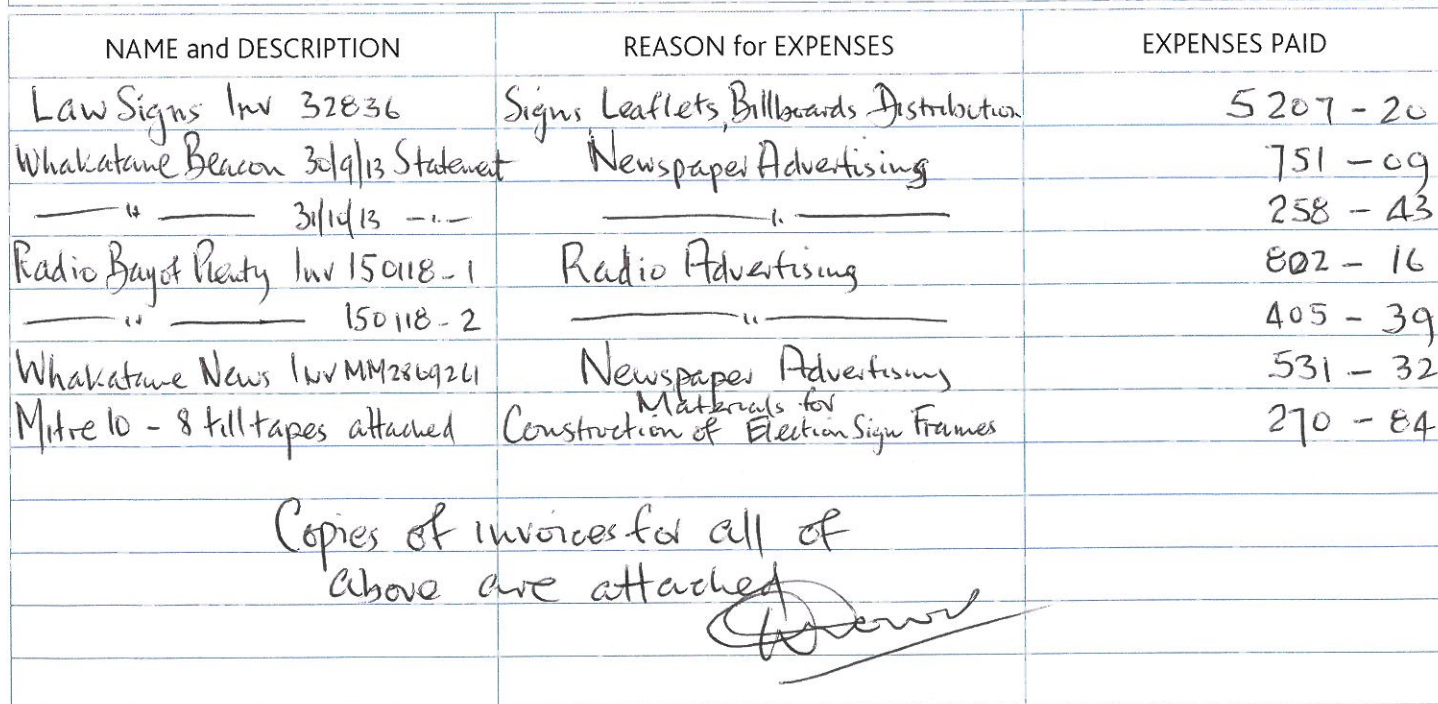 NAME and DESCRIPTION REASON for EXPENSES EXPENSES PAID
Law Signs Inv 32836 Signs Leaflets, Billboards Distribution 5207-20
Whakatane Beacon 30/9/13 Statement Newspaper Advertising 751-09
—— " —— 31/10/13 -"- —— " —— 258-43
Radio Bay of Plenty Inv 150118-1 Radio Advertising 802-16
—— " —— 150118-2 —— " —— 405-39
Whakatane News Inv MM2869261 Newspaper Advertising 531-32
Mitre 10 - 8 till tapes attached Materials for Construction of Election Sign Frames 270-84
Copies of invoices for all of
above are attached